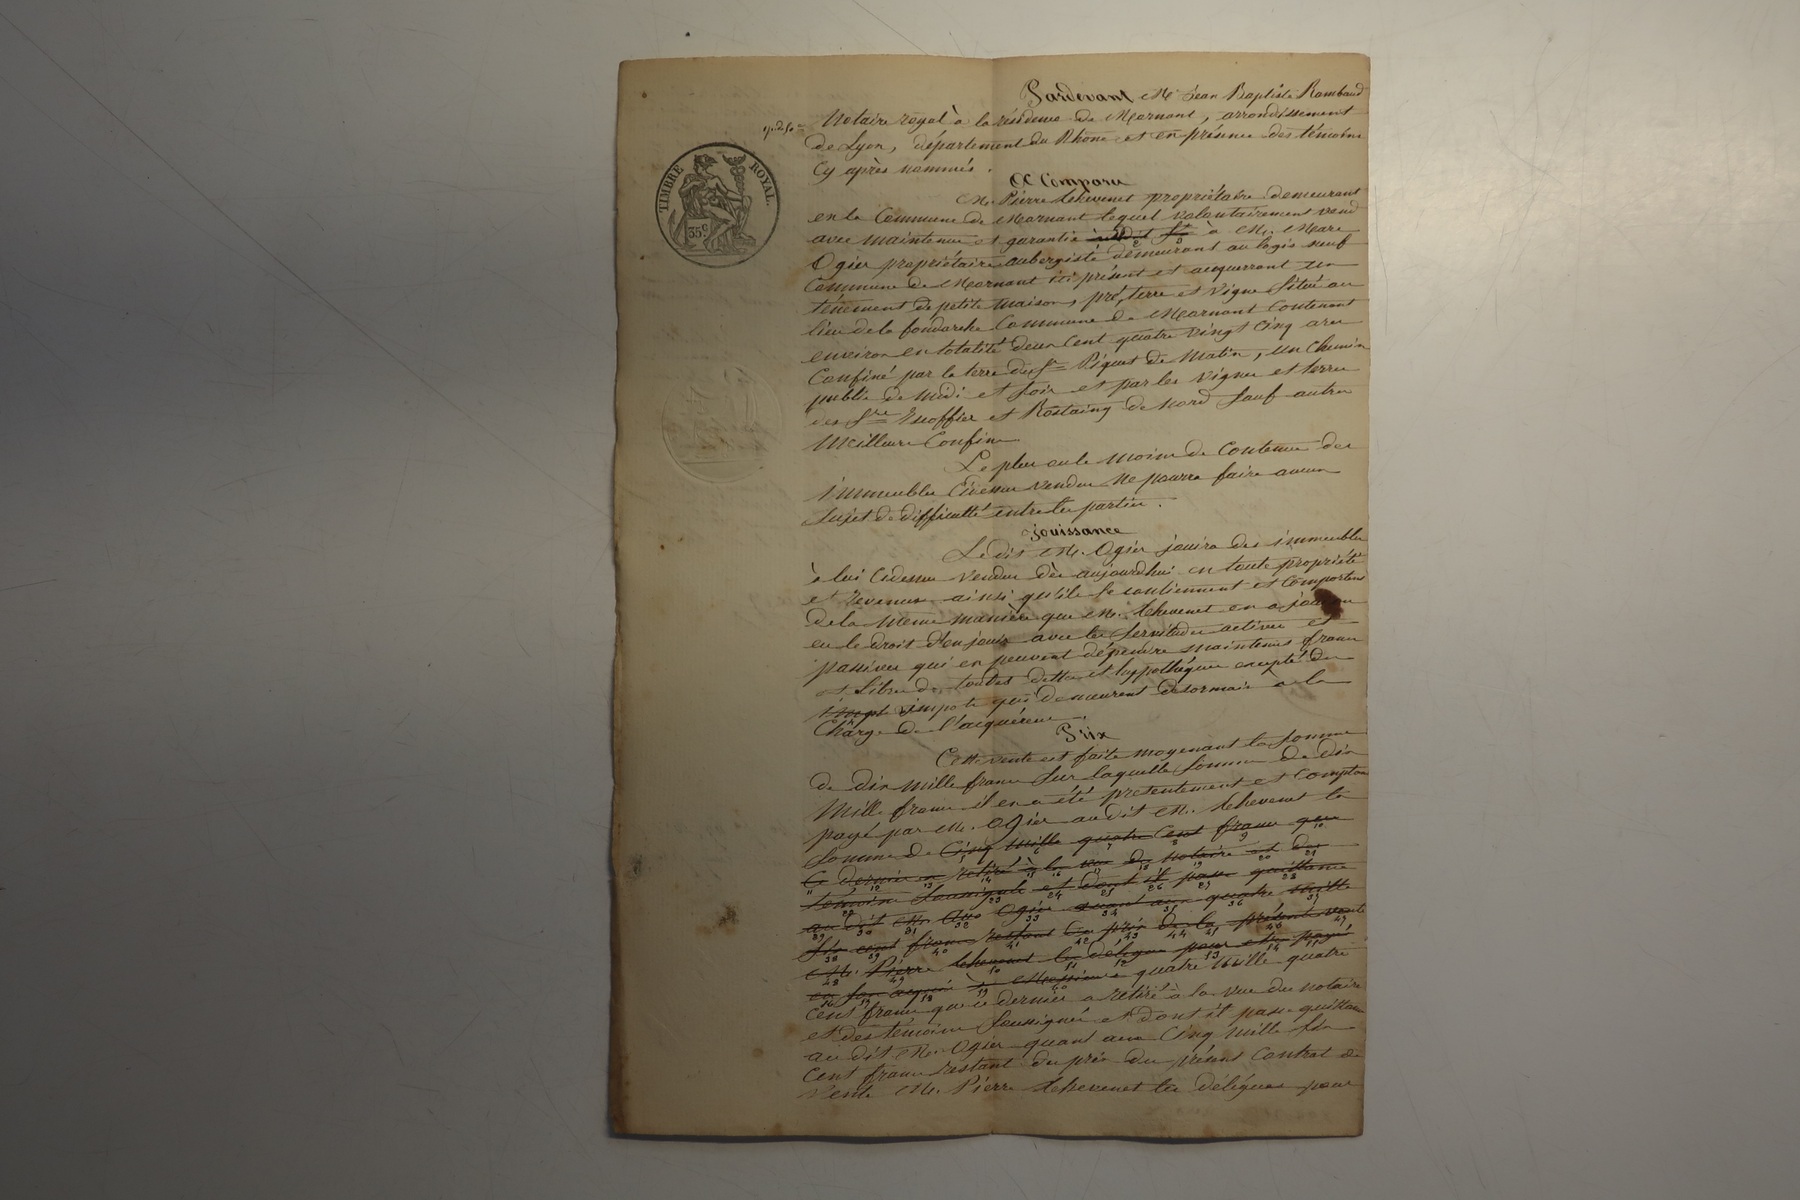 Pardevant Me Jean Baptiste Rambaud
Notaire royal à la résidence de Mornant, arrondissement
de Lyon, département du Rhône et en présence des témoins
Cy après nommés.
A Comparu
TIMBRE ROYAL.
35 c
M. Pierre Thevenet propriétaire demeurant
en la Commune de Mornant lequel volontairement vend
avec maintenue et garantie à M. Marc
Ogier propriétaire aubergiste demeurant au logis neuf
Commune de Mornant ici présent et acquerront un
ténement de petite maison, pré, terre et vigne situé au
lieu de la fondarche Commune de Mornant Contenant
environ en totalité deux Cent quatre vingt Cinq ares
Confiné par la terre du Sr Piquet de Matin, un Chemin
public de Midi et soir et par les vignes et terres
des Srs Escoffier et Rostaing de Nord sauf autres
Meilleurs Confins
Le plus ou le moins de Contenue des
immeubles Cidessus vendus ne pourra faire aucun
sujet de difficulté entre les parties.
Jouissance
Le dit M. Ogier jouira des immeubles
à lui Cidessus vendus dès aujourdhui en toute propriété
et revenus ainsi qu'ils se contiennent et Comportent
de la même manière que M. Thevenet en a joui ou
eu le droit d'en jouir avec les servitudes actives et
passives qui en peuvent dépendre maintenus francs
et libres de toutes dettes et hypothèques excepté des
impots qui demeurent désormais à la
Charge de l'acquéreur.
Prix
Cette vente est faite moyenant la somme
de dix mille francs sur laquelle somme de dix
Mille francs il en a été présentement et comptant
payé par M. Ogier au dit M. Thevenet la
somme de Cinq mille quatre Cent francs que
Ce dernier a retiré à la vue du notaire et des
témoins soussignés et dont il passe quittance
au dit M. Marc Ogier quant aux quatre mille
six cent francs restant du prix de la présente vente
M. Pierre Thevenet les délègue pour etre payé
en son acquit à Messieurs quatre mille quatre
Cent francs que ce dernier a retiré à la vue du notaire
et des témoins soussignés et dont il passe quittance
au dit M. Ogier quant aux Cinq mille six
Cent francs restant du prix du présent Contrat de
Vente M. Pierre Thevenet les délègue pour